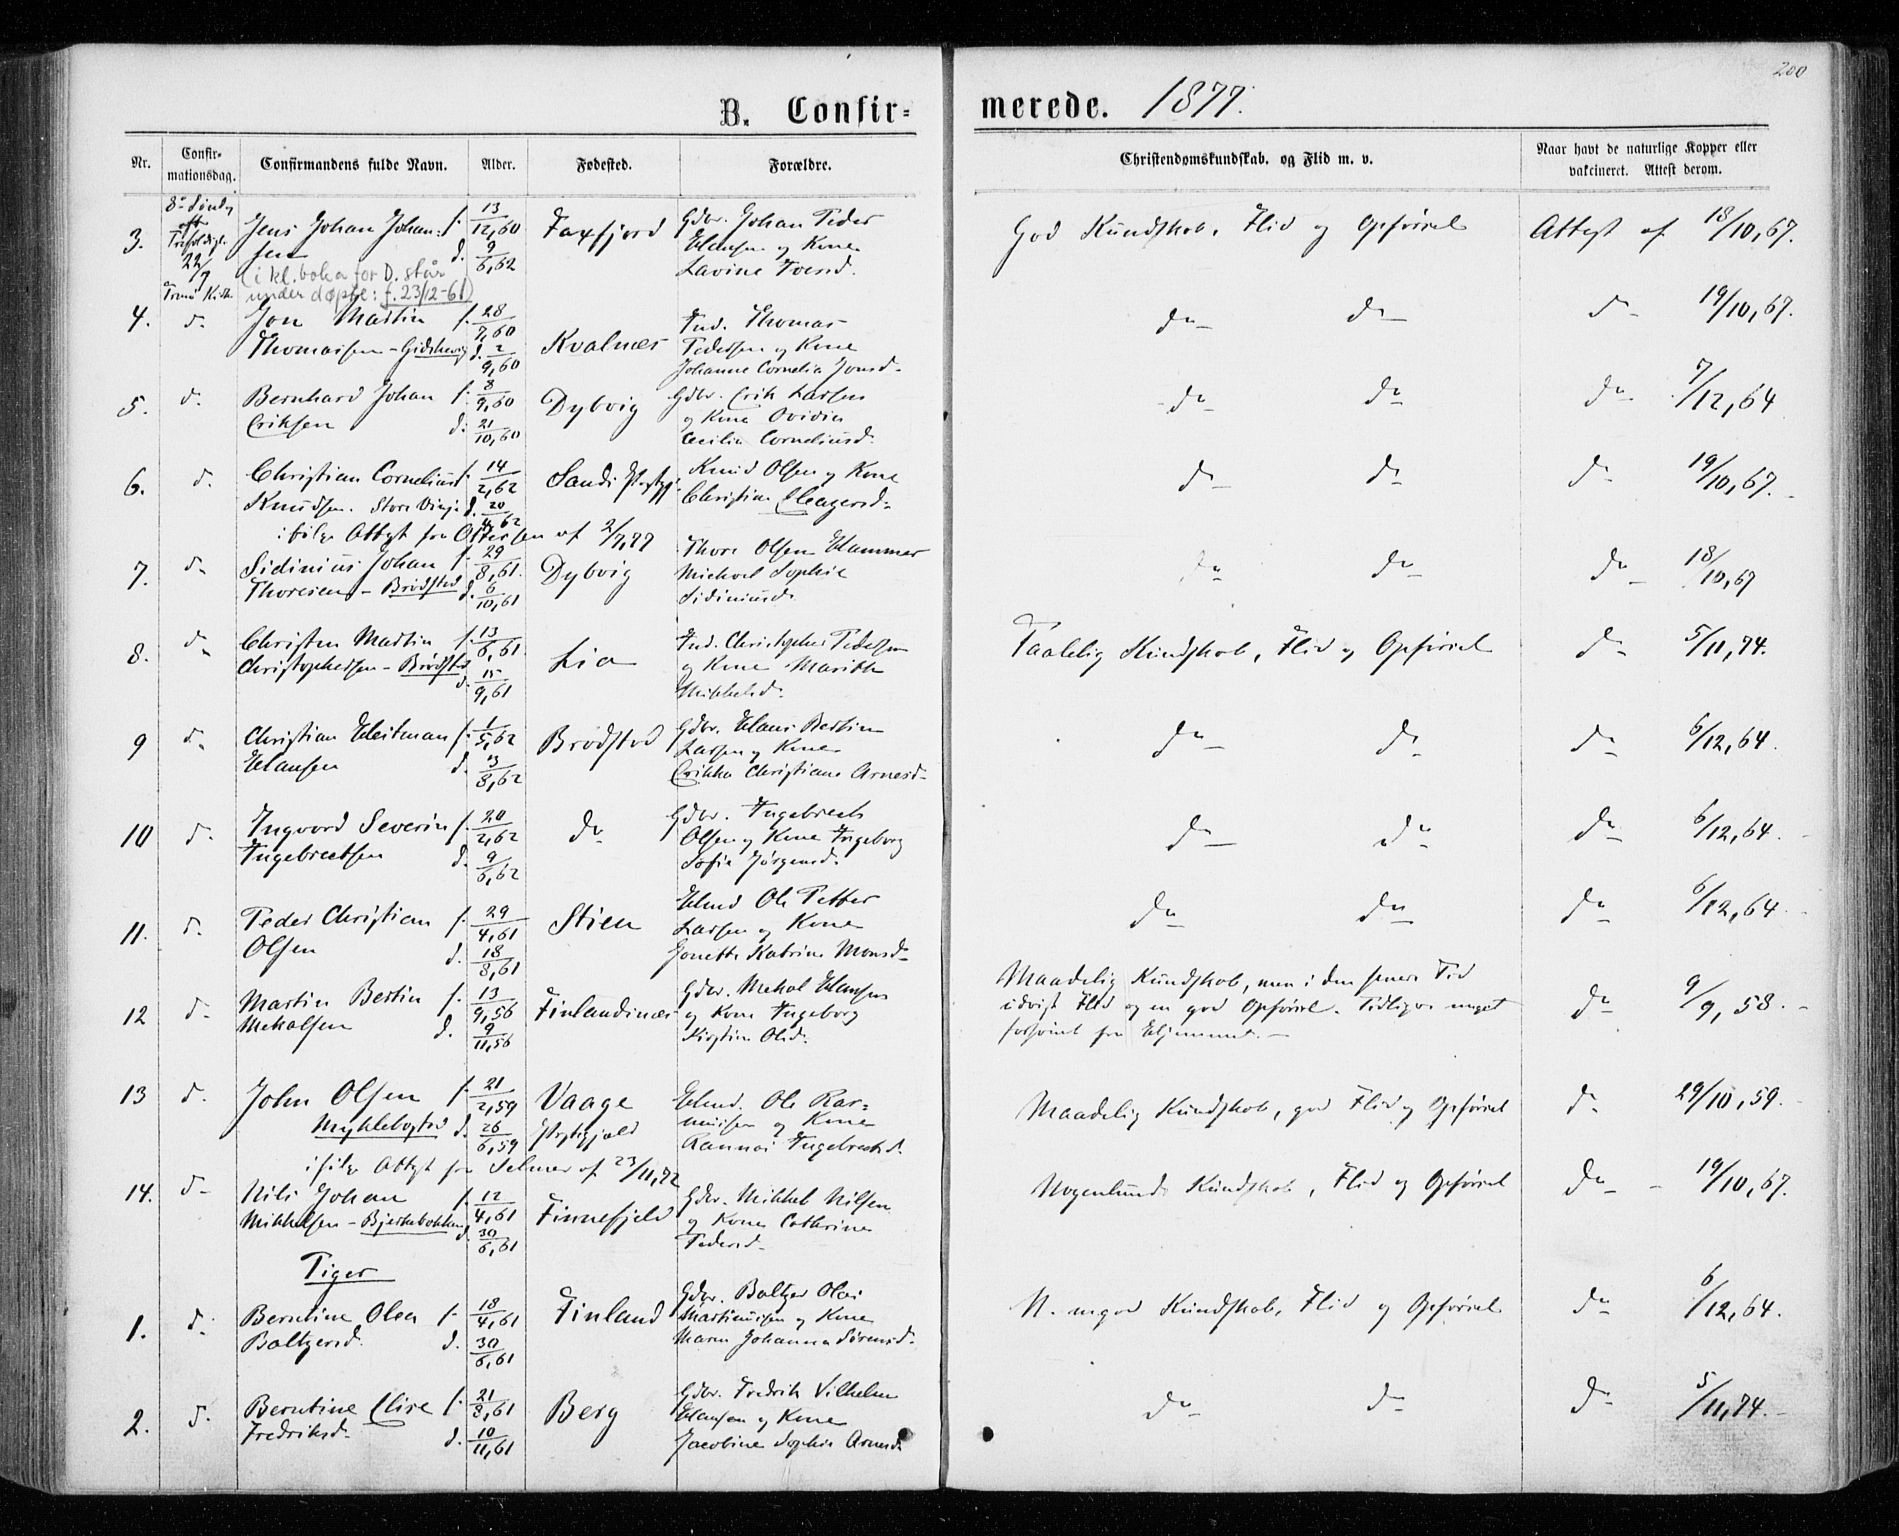 200
B. Confir=
merede. 1877.
Nr.
Confir=
mationsdag.
Confirmandens fulde Navn.
Alder.
Fødested.
Forældre.
Christendomskundskab. og Flid m. v.
Naar havt de naturlige Kopper eller
vakcineret. Attest derom.
3.
22/7
Jens Johan Johan=
sen
f. 13/12,60
d. 9/6,62
Faxfjord
Gdbr. Johan Peder
Hansen og Kone
Lavine Iversd.
God Kundskab, Flid og Opførsel
Attest af 18/10,67.
(i kl. boka for D. står
under døpte: f. 23/12-61)
4. do
Jon Martin
Thomassen - Gidskevig
f. 28/7,60
d. 2/9,60
Kvalnæs
Ind. Thomas
Pedersen og Kone
Johanne Cornelia Jonsd.
do do do 19/10,67.
5. do
Bernhard Johan
Eriksen
f. 8/9,60
d. 21/10,60
Dybvig
Gdbr. Erik Larsen
og Kone Ovidia
Cecilia Corneliusd.
do do do 7/12,64
6. do
Christian Cornelius
Knudsen.
f. 14/2,62
d. 20/4,62
Sands Præstgj.
Knud Olsen og Kone
Christine
do do do 19/10,67.
ifølge Attest fra Ottersen af 2/7,77
7. do
Sidinius Johan
Thoresen - Brødstad
f. 29/8,61.
d. 6/10,61
Dybvig
Thore Olsen Hammer
Michael Sophie
Sidiniusd.
do do do 18/10,67
8. do
Christen Martin
Christophersen - Brødstad
f. 13/6,61.
d. 15/9,61
Lia
Ind. Christopher Pedersen
og Kone Marithe
Mikkelsd.
Taalelig Kundskab, Flid og Opførsel
do 5/11,74.
9 do
Christian Heitman
Hansen
f. 1/5,62
d. 13/8,62
Brødstad
Gdbr. Hans Bertin
Larsen og Kone
Erikka Christiane Arnesd.
do do do 6/12,64.
10 do
Ingvard Severin
Ingebrectsen
f. 20/2,62
d. 9/6,62
do
Gdbr. Ingebrect
Olsen og Kone Ingeborg
Sofie Jørgensd.
do do do 6/12,64.
11. do
Peder Christian
Olsen
f. 29/4,61
d. 18/8,61
Stien
Hmd Ole Petter
Larsen og Kone
Jonette Katrine Monsd.
do do do 6/12,64.
12 do
Martin Bertin
Mekalsen
f. 13/9,56
d. 9/11,56
Finlandsnæs
Gdbr. Mekal Hansen
og Kone Ingeborg
Kirstine Olsd.
Maadelig Kundskab, men i den senere Tid
udvist Flid og en god Opførsel. Tidligere meget
forsømt fra Hjemmet.
do 9/9,58.
13 do
John Olsen
Myklebostad
f. 21/2,59
d. 26/6,59
Vaage
Prstgjæld
Hmd. Ole Ras=
mussen og Kone
Rannoi Ingebrectsd.
Maadelig Kundskab, god Flid og Opførsel
do 29/10,59.
ifølge Attest fra Selmer af 23/11,72
14. do
Nils Johan
Mikkelsen - Bjerkebakken
f. 12/4,61
d. 30/6,61
Finnefjeld
Gdbr. Mikkel Nilsen
og Kone Cathrine
Pedersd.
Nogenlunde Kundskab, Flid og Opførsel
do 19/10,67.
Piger
1. do
Berntine Olea
Baltzersd.
f. 18/4,61
d. 30/6,61
Finland
Gdbr. Baltzer Olai
Martinusen og Kone
Maren Johanna Sørensd.
N. mgod Kundskab, Flid og Opførsel
do 6/12,64.
2. do
Berntine Elise
Fredriksd.
f. 21/8,61
d. 10/11,61
Berg
Gdbr. Fredrik Vilhelm
Hansen og Kone
Jacobine Sophie Arnesd.
do do do 5/11,74.